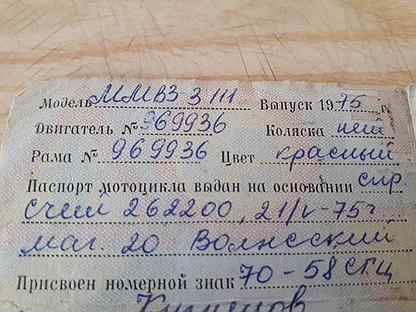 Модель ММВЗ 3 111 Выпуск 1975 г.
Двигатель № 969936 Коляска нет
Рама № 969936 Цвет красный
Паспорт мотоцикла выдан на основании спр
счет 262200, 21/V-75г
маг. 20 Волжский
Присвоен номерной знак 70-58 СГЦ